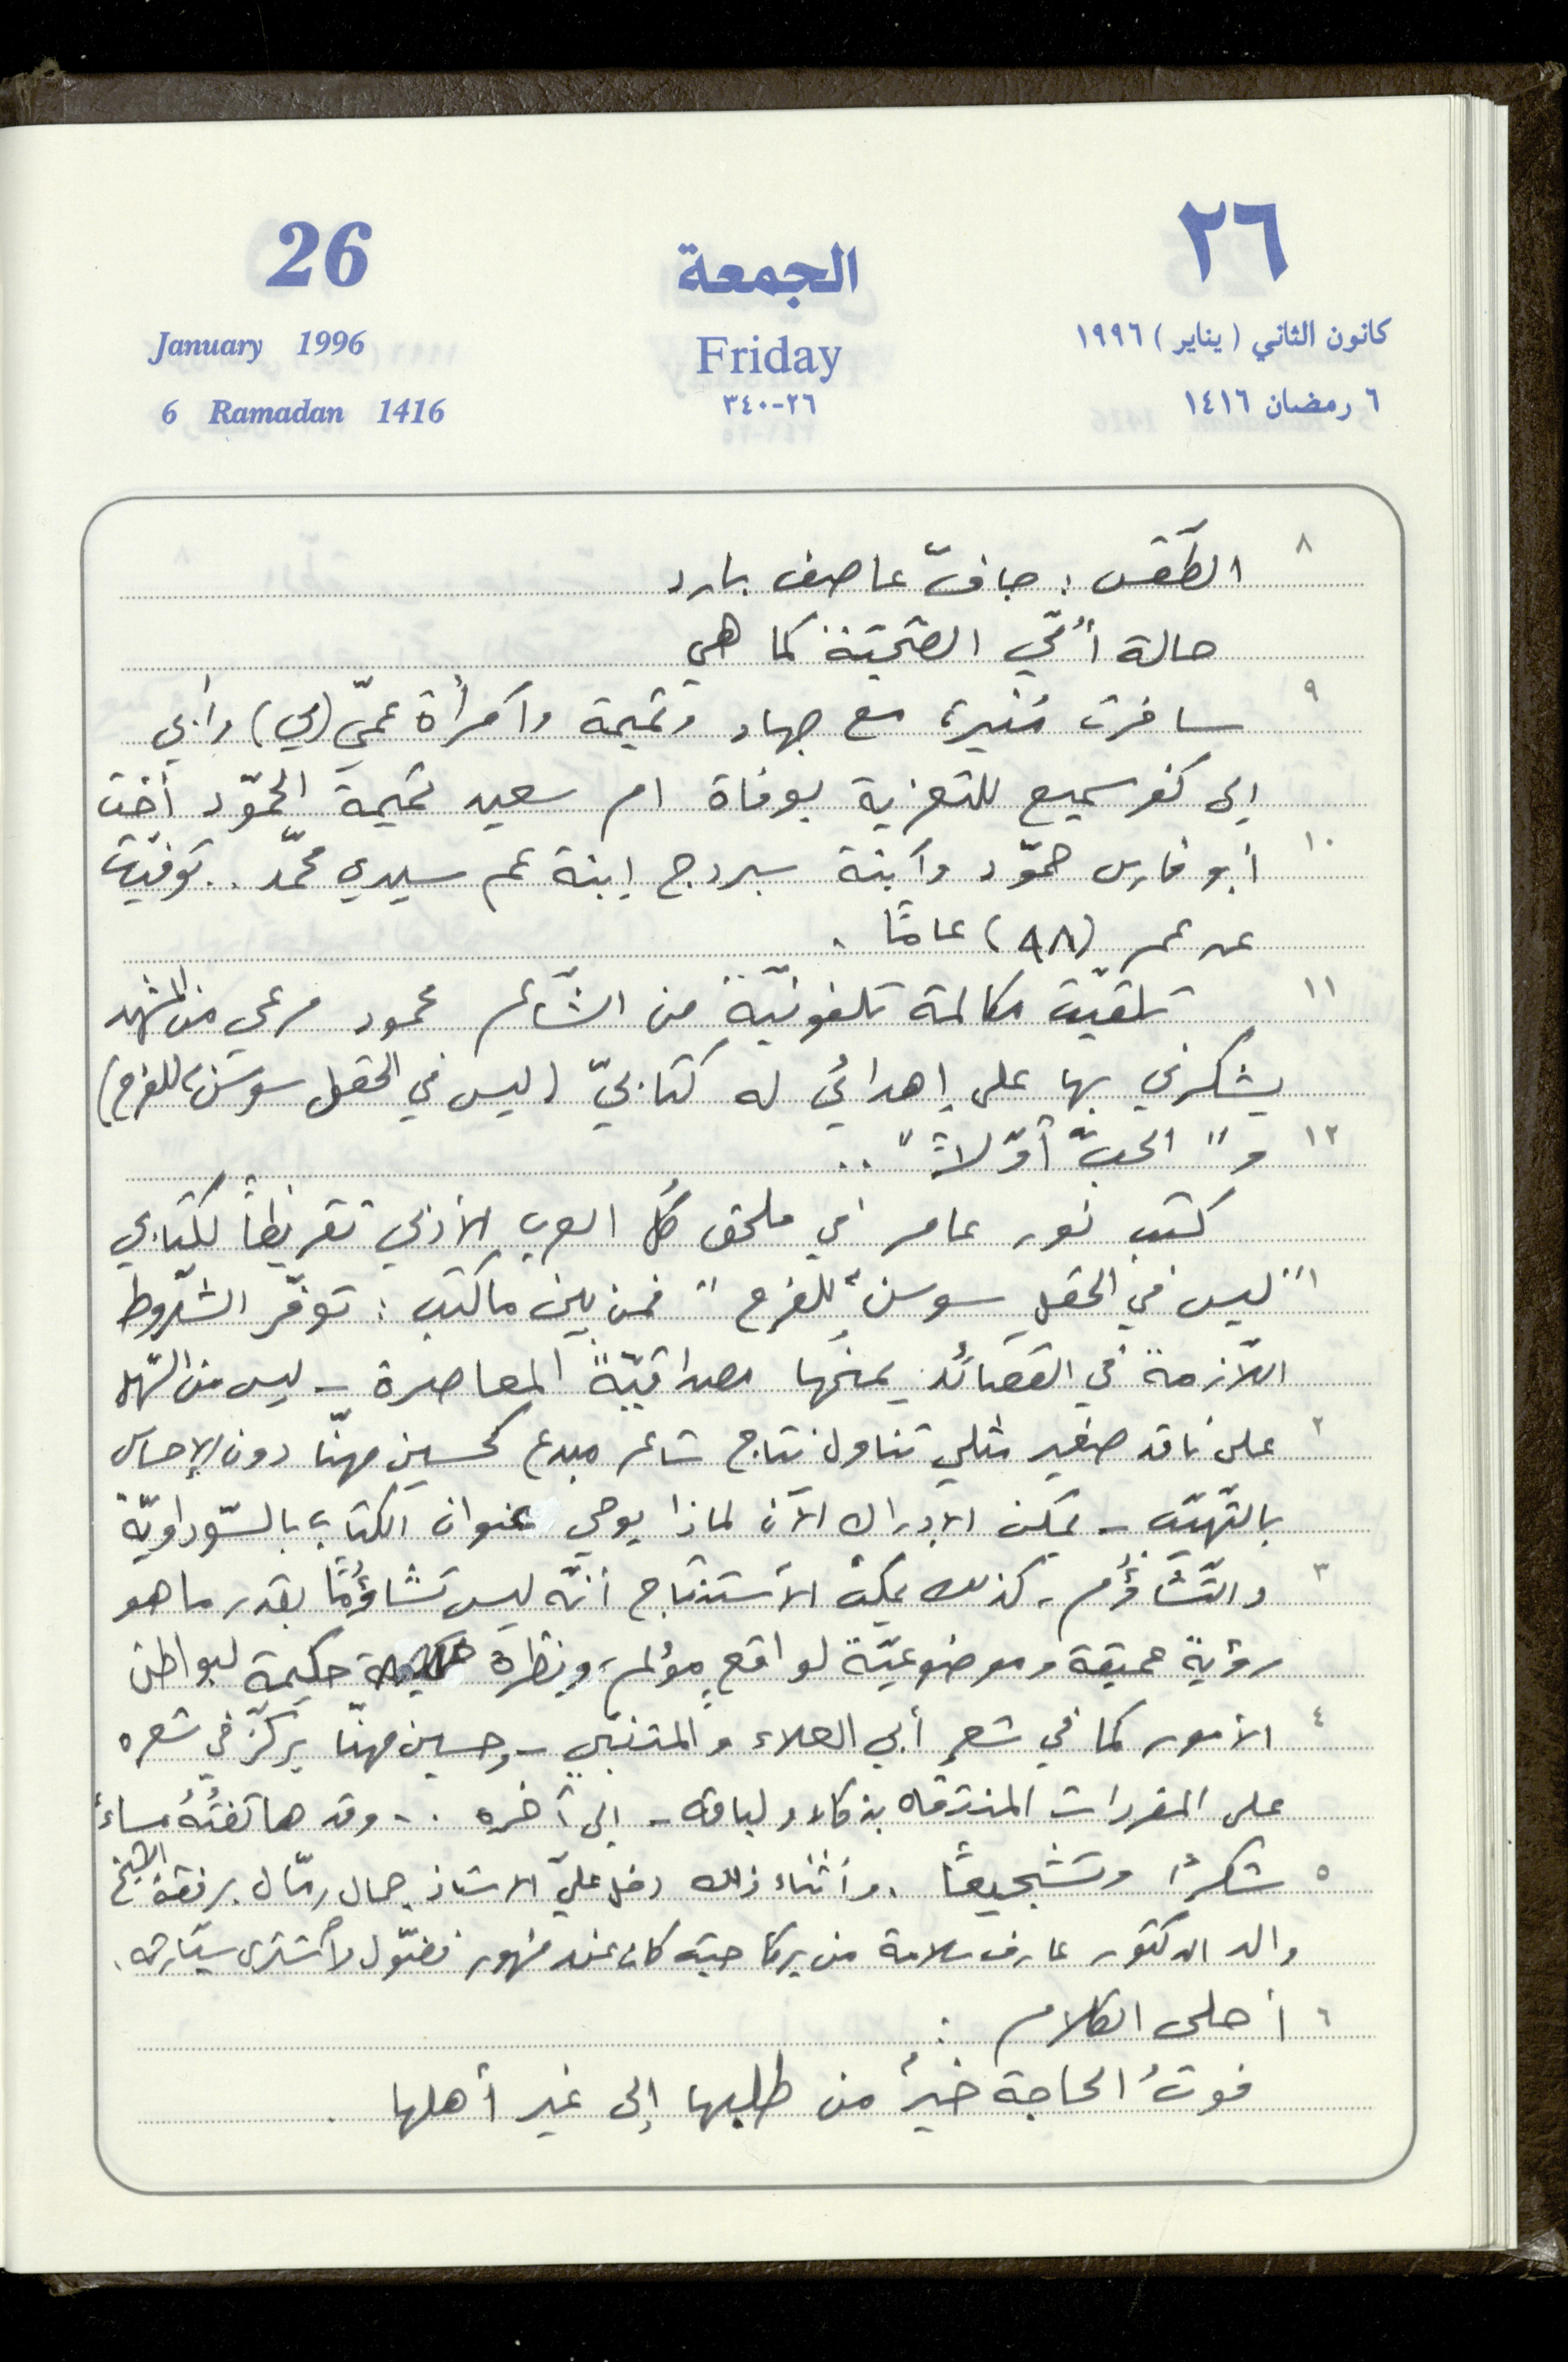 26
الجمعة
٢٦
January 1996
Friday
كانون الثاني (يناير) ١٩٩٦
6 Ramadan 1416
٢٦-٣٤٠
٦ رمضان ١٤١٦
٨ الطّقس : جافّ عاصف بارد
حالة أُمّي الصّحّيّة كما هي
٩ سافرت مُنيرة مع جهاد وتميمة وامرأة عمّي (مي) وأبي
إلى كفرسميع للتعزية بوفاة ام سعيد تميمة الحمّود أخت
١٠ أبو فارس حمّود وابنة بردج إبنة عم سيدي محمّد .. توفّيت
عن عمر (٩٨) عامًا .
١١ تلقيّت مكالمة تلفونيّة من الشّاعر محمود مرعي من المشهد
يشكرني بها على إهدائي له كتابيّ (ليس في الحقل سوسنٌ للفرح)
١٢ و" الحبّ أوّلاً " ..
كتب نور عامر في ملحق كل العرب الأدبي تقريظًا لكتابي
١ "ليس في الحقل سوسنٌ للفرح " فمن بين ما كتب : توفّر الشّروط
اللّازمة في القصائد يمنحها مصداقيّةً المعاصرة - ليس من السّهل
٢ على ناقد صغير مثلي تناول نتاج شاعر مبدع كحسين مهنّا دون الإحساس
بالتّهيّب - يمكن الإدراك الآن لماذا يوحي عنوان الكتاب بالسّوداويّة
٣ والتّشاؤُم، كذلك يمكن الاستنتاج أنّه ليس تشاؤُمًا بقدر ما هو
رؤيةً عميقة وموضوعيّةً لواقعٍ مؤلم، ونظرة حكيمة لبواطن
٤ الأمور كما في شعر أبي العلاء والمتنبّي - وحسين مهنّا يركّز في شعره
على المفردات المنتقاه بذكاء ولباقه - إلى آخره .. وقد هاتفتُهُ مساءً
٥ شكرًا وتشجيعًا . وأثناء ذلك دخل عليّ الاستاذ جمال رمّال برفقة الشيخ
والد الدكتور عارف سلامة من يركا حيث كان عند فضّول لاشترى سيّارة.
٦ أحلى الكلام :
فوتُ الحاجة خيرٌ من طلبها إلى غير أهلها